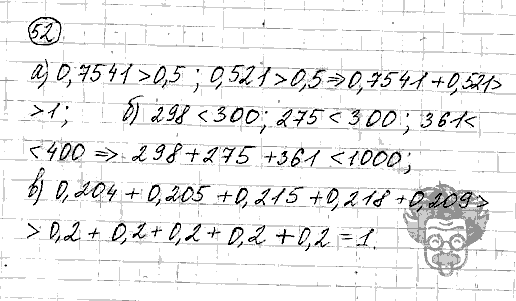 52
а) 0,7541 > 0,5 ; 0,521 > 0,5 ⇒ 0,7541 + 0,521 >
> 1 ; б) 298 < 300 ; 275 < 300 ; 361 <
< 400 ⇒ 298 + 275 + 361 < 1000 ;
в) 0,204 + 0,205 + 0,215 + 0,218 + 0,209 >
> 0,2 + 0,2 + 0,2 + 0,2 + 0,2 = 1.